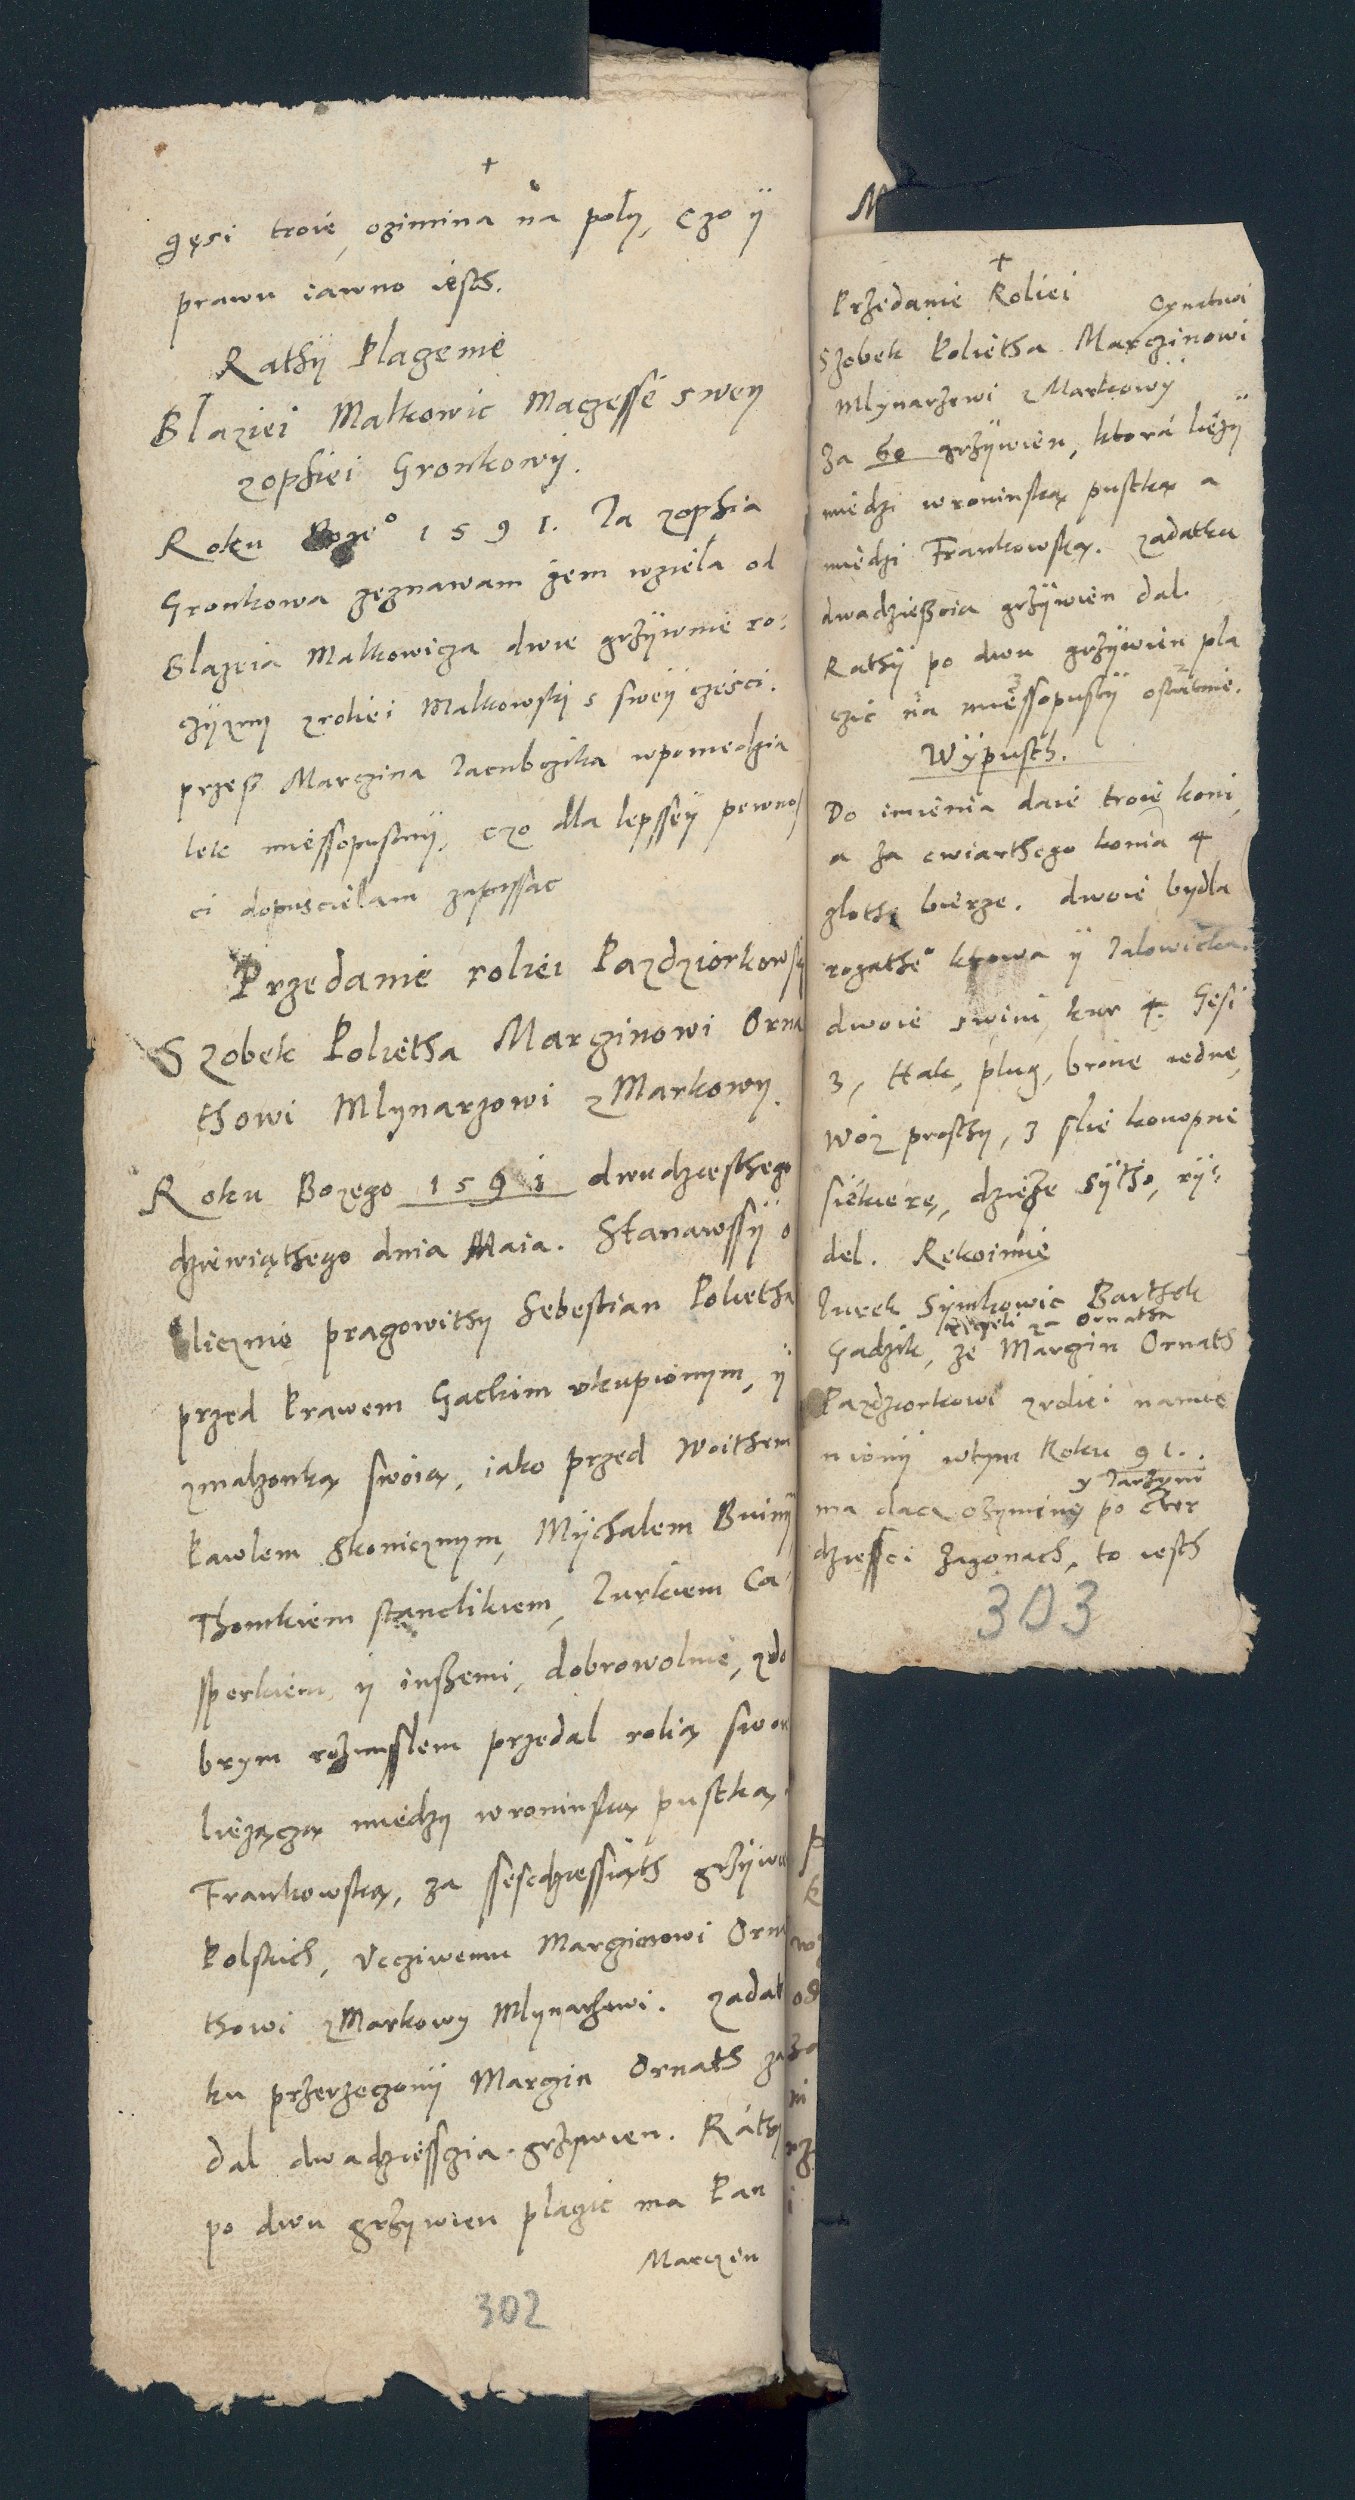 +
gęsi troie, ozimina na poly, czo ÿ
prawu iawno iesth.
Rathÿ Placzenie
Blaziei Malkowic Maczesse swey
zophiei Gronkowÿ.
Roku Boże° 1591. Ia zophia
Gronkowa zeznawam żem wziela od
Blazeia Malkowicza dwie grżÿwnie ro:
czÿzny zroliei Malkowskÿ s sweÿ cżesci.
przesz Marczina Iacubczika wponiedzia
lek miessopustnÿ, czo dla lepsseÿ pewnos
ci dopuscielam zapissac
Przedanie roliei Pazdziorkowsky
Szobek Polietha Marczinowi Orna
thowi Mlynarzowi zMarkowÿ.
Roku Bożego 1591 dwudziesthego
dziewiąthego dnia Maia. Stanawssÿ o
bliczmie praczowithy Sebestian Polietha
przed Prawem Gackim vkupionym, ÿ
zmalżonką swoią, iako przed Woithem
Pawlem Skonicznym, Mÿchalem Buinÿ
Thomkiem stanclikiem, Iurkiem Ca
sperkiem ÿ inßemi, dobrowolnie, zdo
brym rozmyslem przedal rolią swoi
lieżączą miedzy wroninską pustką.
Frankowską, za ssescdziessiąth grżÿwi
Polskich, Vcziwemu Marczinowi Orna
thowi zMarkowy Mlynarzowi. zadat
ku przerzeczonÿ Marczin Ornath za
dal dwadziessczia grżywien. Ráthy
po dwu grżywien placic ma Pan
Marczin
302
M
+
Przedanie Roliei
Ornatwi
Szobek Polietha Marczinowi
Mlynarzewi zMarkowÿ
za 60 grżÿwien, ktora lieżÿ
miedzi wroninską pustką a
miedzi Frankowską. zadatku
dwadzießcia grżÿwien dal.
Rathÿ po dwu grżÿwien pla
czic na miessopustÿ ostatnie.
Wÿpusth.
Do imienia daie troie koni,
a za cwiarthego konia 4
zlothe bierze. dwoie bydla
rogathe° krowa ÿ Ialowicka.
dwoie swini, kur 4. Gesi
3, Hak, plug, brone iedne,
Wóz prosthy, 3 slie konopne
siekierę, dzieże sÿtho, rÿ:
del. Rekoimie
Iurek Simkowic Barthek
ręczeli za Ornatha
Gadzik, że Marczin Ornath
Pazdziorkowi zroliei namie
nionÿ wtym Roku 91.
y Iarżynę
ma dacz ożyminę po cżter
dziessci zagonach, to iesth
303